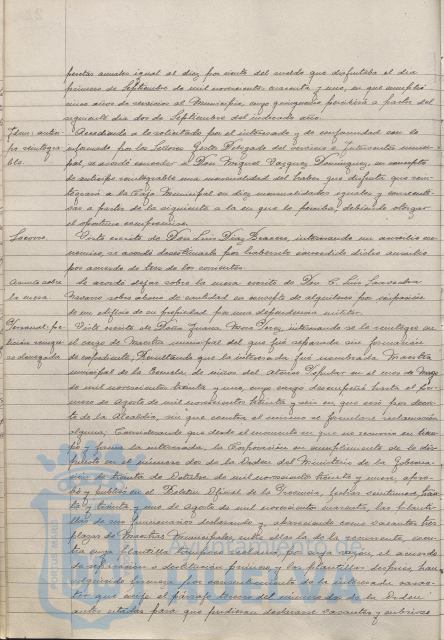 pesetas anuales igual al diez por ciento del sueldo que disfrutaba el dia
primero de Septiembre de mil novecientos cuarenta y uno, en que cumplió
cinco años de servicios al Municipio, cuyo quinquenio percibirá a partir del
siguiente dia dos de Septiembre del indicado año.
Idem: antici-
po reintegra-
ble.
Accediendo a lo solicitado por el interesado y de conformidad con lo
informado por los Señores Gestor Delegado del servicio e Interventor munici-
pal, se acordó conceder a Don Miguel Vazquez Dominguez, en concepto
de anticipo reintegrable una mensualidad del haber que disfruta que rein-
tegrará a la Caja Municipal en diez mensualidades iguales y consecuti-
vas a partir de la siguiente a la en que lo perciba, debiendo otorgar
el oportuno compromiso.
Socorro.
Visto escrito de Don Luis Diaz interesando un auxilio eco-
nomico, se acordó desestimarlo por habersele concedido dicho auxilio
por acuerdo de tres de los corrientes.
Asunto sobre
la mesa
Se acordó dejar sobre la mesa escrito de Don C. Luis
Navarro sobre abono de cantidad en concepto de alquileres por
de un edificio de su propiedad por una dependencia militar.
Personal: pe-
tición reingre-
so denegada.
Visto escrito de Doña Juana Mora interesando se la reintegre en
el cargo de Maestra municipal del que fué separada sin formación
de expediente; Resultando que la interesada fué nombrada Maestra
municipal de la Escuela de niños del Ateneo Popular en el mes de Mayo
de mil novecientos treinta y uno, cuyo cargo desempeñó hasta el pri-
mero de Agosto de mil novecientos treinta y seis en que cesó por decre-
to de la Alcaldia, sin que contra el mismo se formulara reclamación
alguna; Considerando que desde el momento en que no recurrió en tiem-
po y forma la interesada, la Corporación en cumplimiento de lo dis-
puesto en el número dos de la Orden del Ministerio de la Goberna-
ción de treinta de Octubre de mil novecientos treinta y nueve, apro-
bó y publicó en el Boletin Oficial de la Provincia, fechas veintinueve,
y treinta y uno de Agosto de mil novecientos cuarenta, las planti-
llas de sus funcionarios declarando y apareciendo como vacantes tres
plazas de Maestras Municipales, entre ellas la de la recurrente,
por cuya razón, el acuerdo
de separación o destitución primero y las plantillas despues, han
adquirido firmeza por consentimiento de la interesada
que exige el párrafo tercero del número dos de la Orden
antes citada para que pudieran declararse vacantes y cubrirse